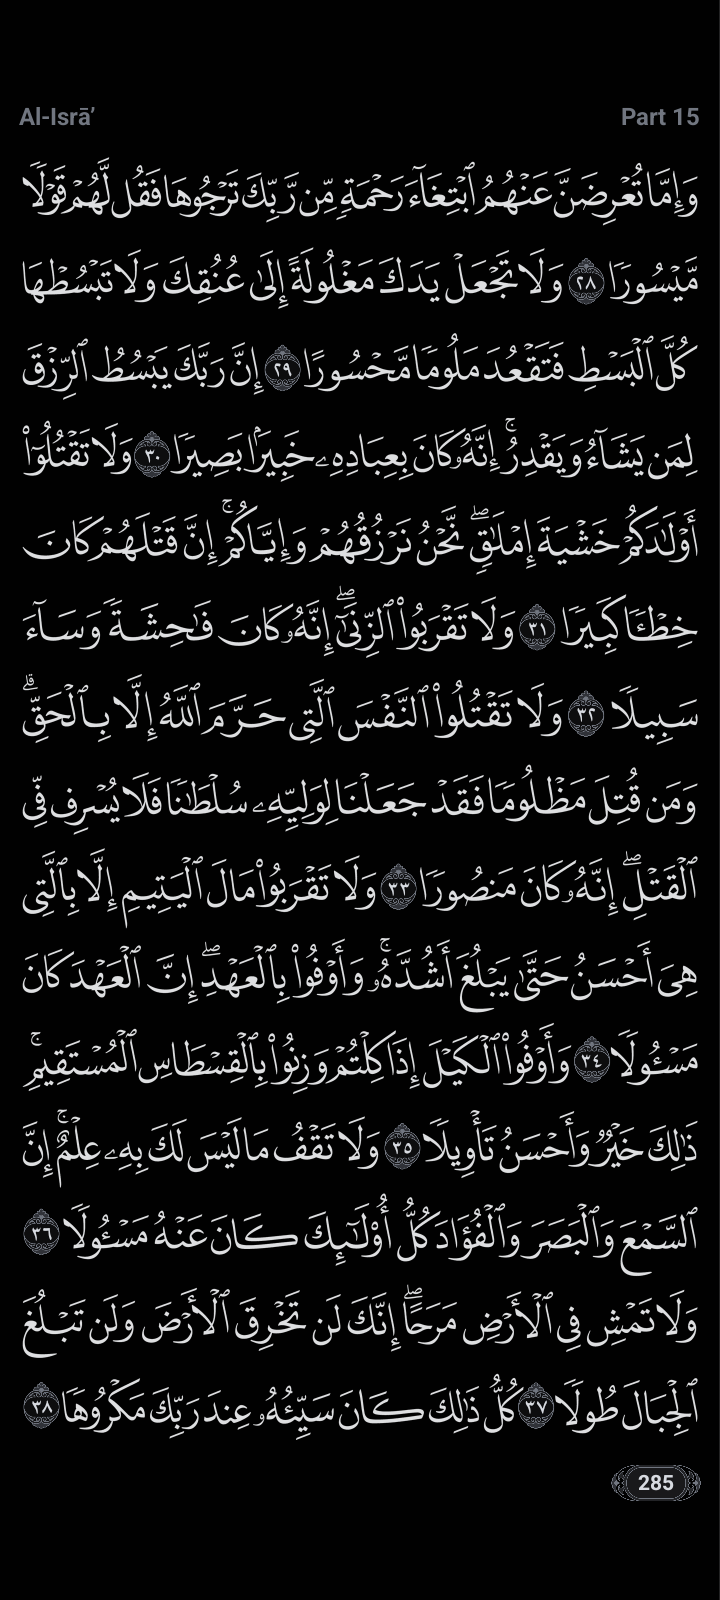 Al-Isrā’
Part 15
وَإِمَّا تُعۡرِضَنَّ عَنۡهُمُ ٱبۡتِغَآءَ رَحۡمَةٖ مِّن رَّبِّكَ تَرۡجُوهَا فَقُل لَّهُمۡ قَوۡلٗا
مَّيۡسُورٗا ٢٨ وَلَا تَجۡعَلۡ يَدَكَ مَغۡلُولَةً إِلَىٰ عُنُقِكَ وَلَا تَبۡسُطۡهَا
كُلَّ ٱلۡبَسۡطِ فَتَقۡعُدَ مَلُومٗا مَّحۡسُورًا ٢٩ إِنَّ رَبَّكَ يَبۡسُطُ ٱلرِّزۡقَ
لِمَن يَشَآءُ وَيَقۡدِرُۚ إِنَّهُۥ كَانَ بِعِبَادِهِۦ خَبِيرَۢا بَصِيرٗا ٣٠ وَلَا تَقۡتُلُوٓاْ
أَوۡلَٰدَكُمۡ خَشۡيَةَ إِمۡلَٰقٖۖ نَّحۡنُ نَرۡزُقُهُمۡ وَإِيَّاكُمۡۚ إِنَّ قَتۡلَهُمۡ كَانَ
خِطۡـٔٗا كَبِيرٗا ٣١ وَلَا تَقۡرَبُواْ ٱلزِّنَىٰٓۖ إِنَّهُۥ كَانَ فَٰحِشَةٗ وَسَآءَ
سَبِيلٗا ٣٢ وَلَا تَقۡتُلُواْ ٱلنَّفۡسَ ٱلَّتِي حَرَّمَ ٱللَّهُ إِلَّا بِٱلۡحَقِّۗ
وَمَن قُتِلَ مَظۡلُومٗا فَقَدۡ جَعَلۡنَا لِوَلِيِّهِۦ سُلۡطَٰنٗا فَلَا يُسۡرِف فِّي
ٱلۡقَتۡلِۖ إِنَّهُۥ كَانَ مَنصُورٗا ٣٣ وَلَا تَقۡرَبُواْ مَالَ ٱلۡيَتِيمِ إِلَّا بِٱلَّتِي
هِيَ أَحۡسَنُ حَتَّىٰ يَبۡلُغَ أَشُدَّهُۥۚ وَأَوۡفُواْ بِٱلۡعَهۡدِۖ إِنَّ ٱلۡعَهۡدَ كَانَ
مَسۡـُٔولٗا ٣٤ وَأَوۡفُواْ ٱلۡكَيۡلَ إِذَا كِلۡتُمۡ وَزِنُواْ بِٱلۡقِسۡطَاسِ ٱلۡمُسۡتَقِيمِۚ
ذَٰلِكَ خَيۡرٞ وَأَحۡسَنُ تَأۡوِيلٗا ٣٥ وَلَا تَقۡفُ مَا لَيۡسَ لَكَ بِهِۦ عِلۡمٌۚ إِنَّ
ٱلسَّمۡعَ وَٱلۡبَصَرَ وَٱلۡفُؤَادَ كُلُّ أُوْلَٰٓئِكَ كَانَ عَنۡهُ مَسۡـُٔولٗا ٣٦
وَلَا تَمۡشِ فِي ٱلۡأَرۡضِ مَرَحًاۖ إِنَّكَ لَن تَخۡرِقَ ٱلۡأَرۡضَ وَلَن تَبۡلُغَ
ٱلۡجِبَالَ طُولٗا ٣٧ كُلُّ ذَٰلِكَ كَانَ سَيِّئُهُۥ عِندَ رَبِّكَ مَكۡرُوهٗا ٣٨
285